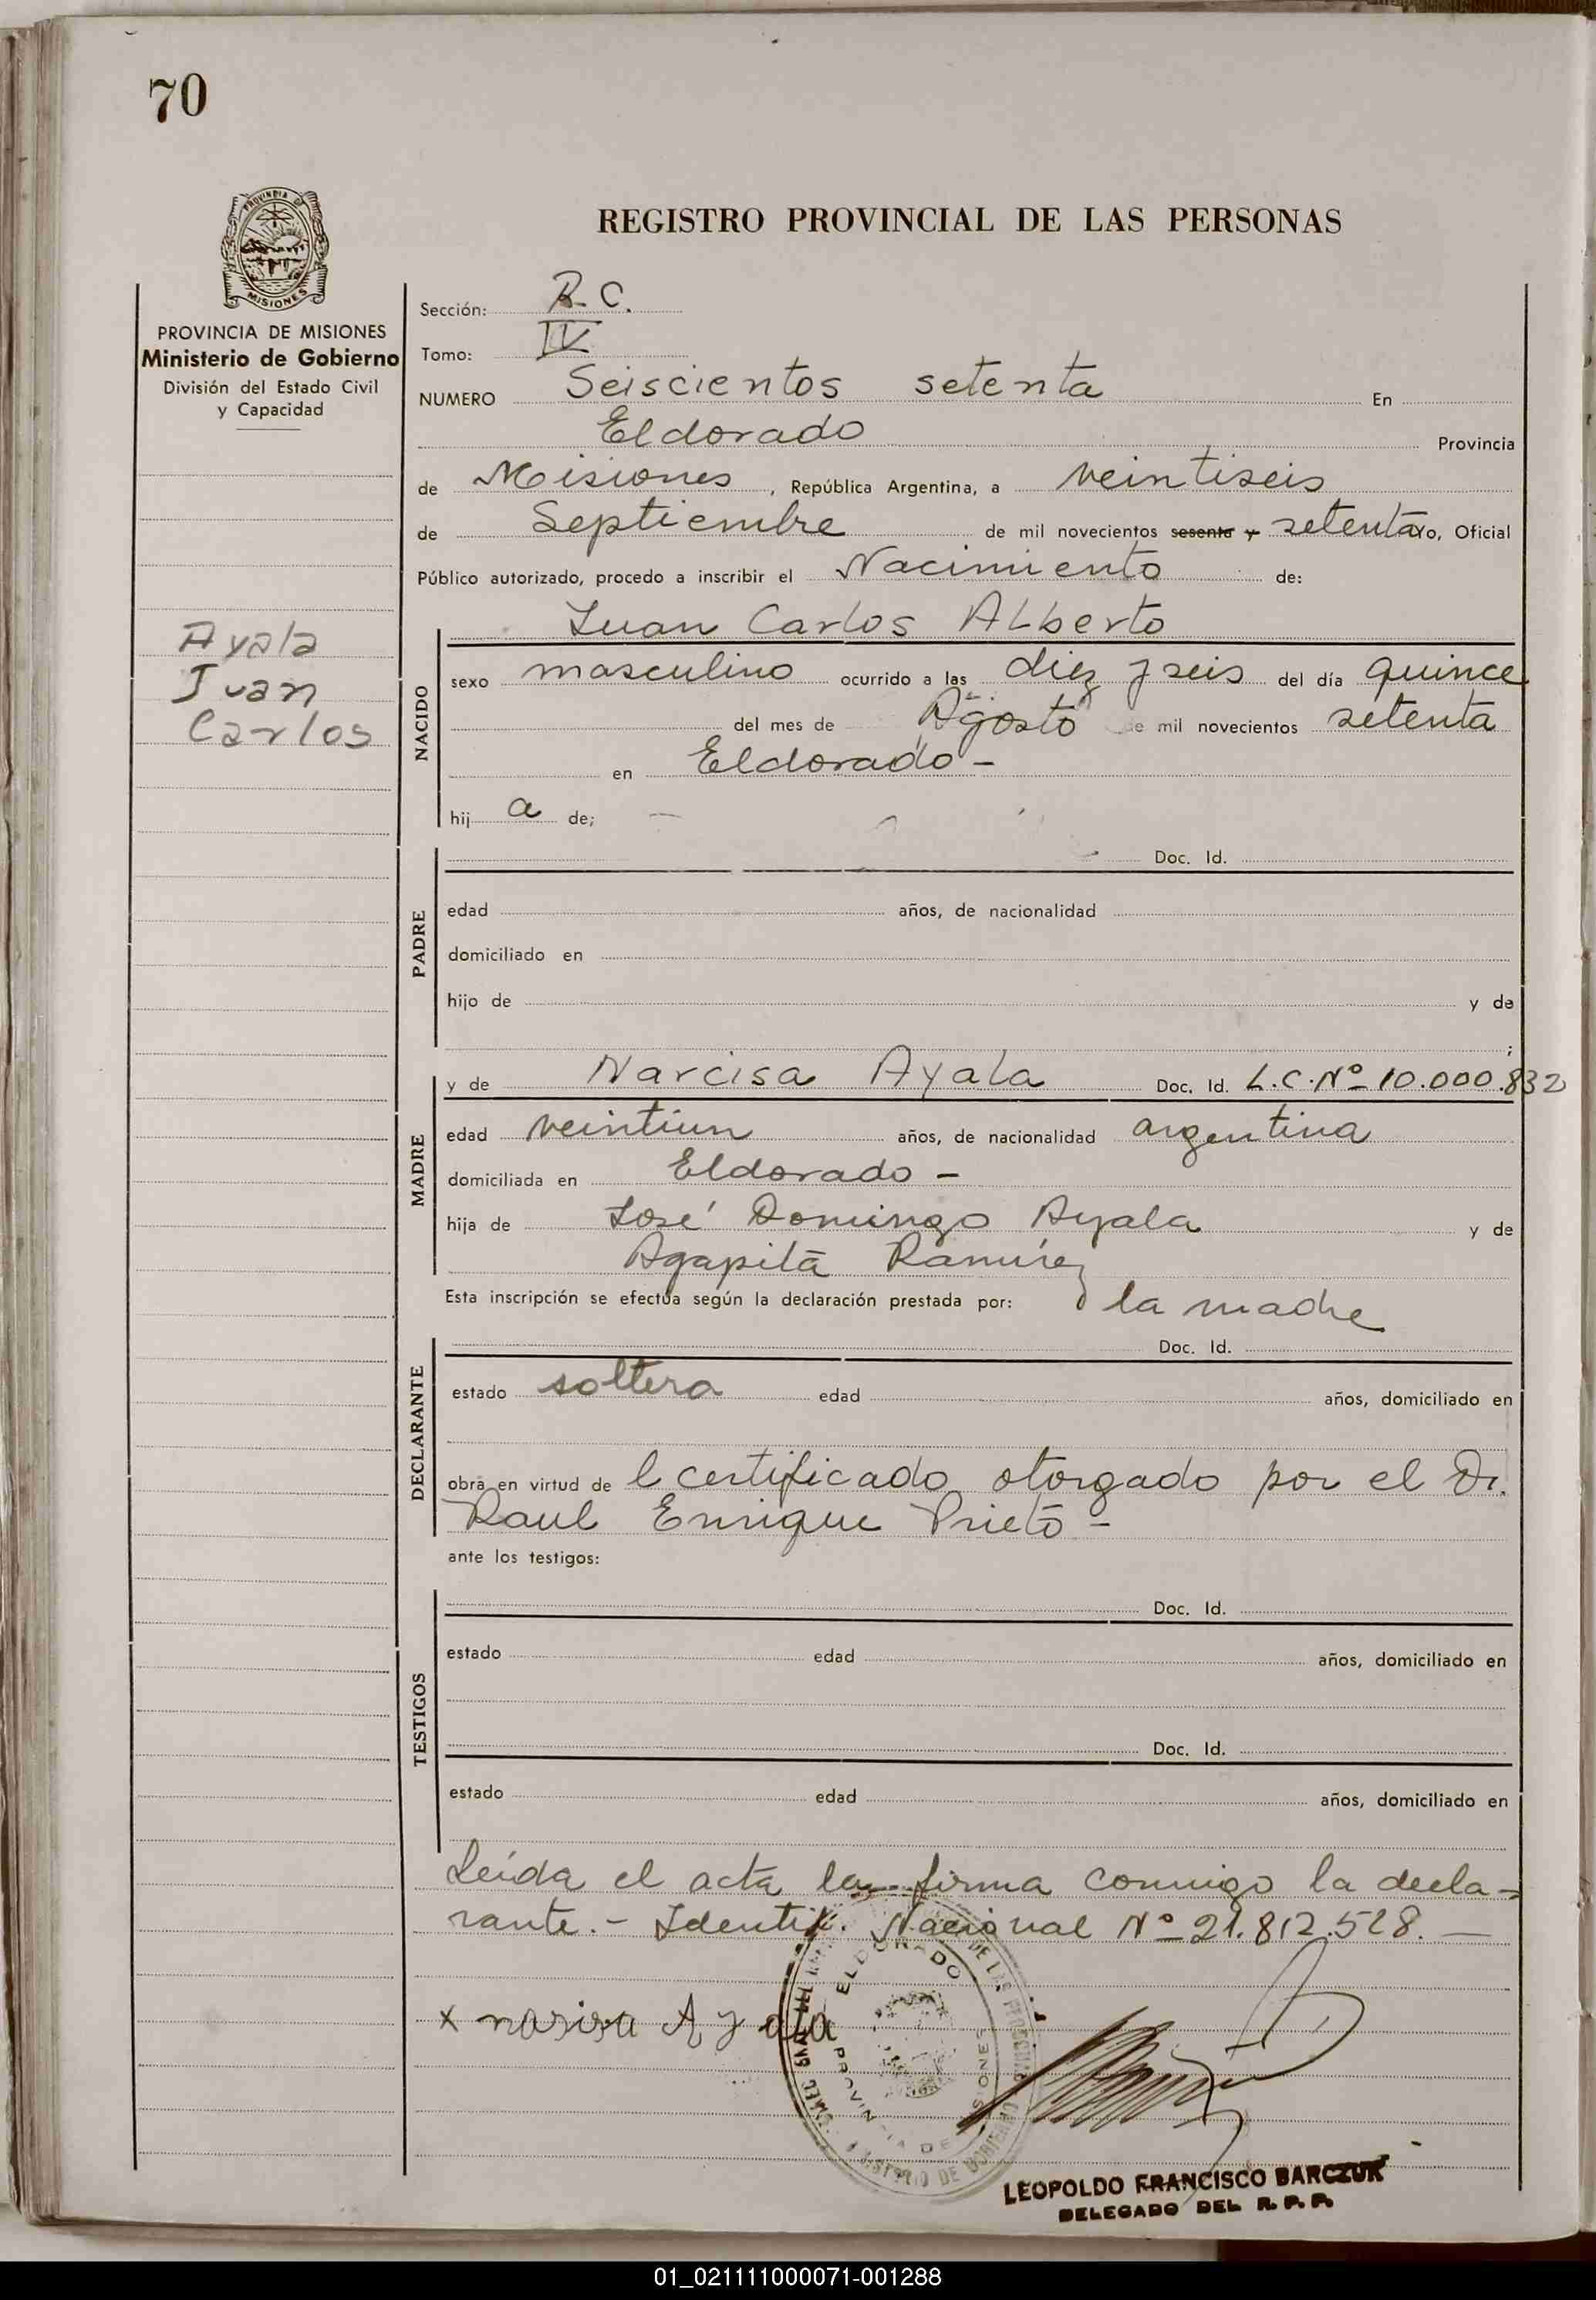 70
PROVINCIA DE
MISIONES
REGISTRO PROVINCIAL DE LAS PERSONAS
PROVINCIA DE MISIONES
Ministerio de Gobierno
División del Estado Civil
y Capacidad
Ayala
Juan
Carlos
Sección: R.C.
Tomo: IV
NUMERO Seiscientos setenta En
Eldorado Provincia
de Misiones, República Argentina, a veintiseis
de Septiembre de mil novecientos sesenta y setenta yo, Oficial
Público autorizado, procedo a inscribir el Nacimiento de:
NACIDO
Juan Carlos Alberto
sexo masculino ocurrido a las diez y seis del día quince
del mes de Agosto de mil novecientos setenta
en Eldorado -
hij a de;
PADRE
Doc. Id.
edad años, de nacionalidad
domiciliado en
hijo de y de
;
MADRE
y de Narcisa Ayala Doc. Id. L.C.Nº 10.000.832
edad veintiun años, de nacionalidad argentina
domiciliada en Eldorado -
hija de José Domingo Ayala y de
Agapita Ramírez
Esta inscripción se efectúa según la declaración prestada por: la madre
DECLARANTE
Doc. Id.
estado soltera edad años, domiciliado en
obra en virtud de l certificado otorgado por el Dr.
Raul Enrique Prieto -
ante los testigos:
TESTIGOS
Doc. Id.
estado edad años, domiciliado en
Doc. Id.
estado edad años, domiciliado en
Leída el acta la firma conmigo la decla-
rante.- Identif. Nacional Nº 21.812.528. —
x narisa Ayala
ELDORADO
PROVINCIA DE MISIONES
MINISTERIO DE GOBIERNO
LEOPOLDO FRANCISCO BARCZUK
DELEGADO DEL R. P. P.
01_021111000071-001288